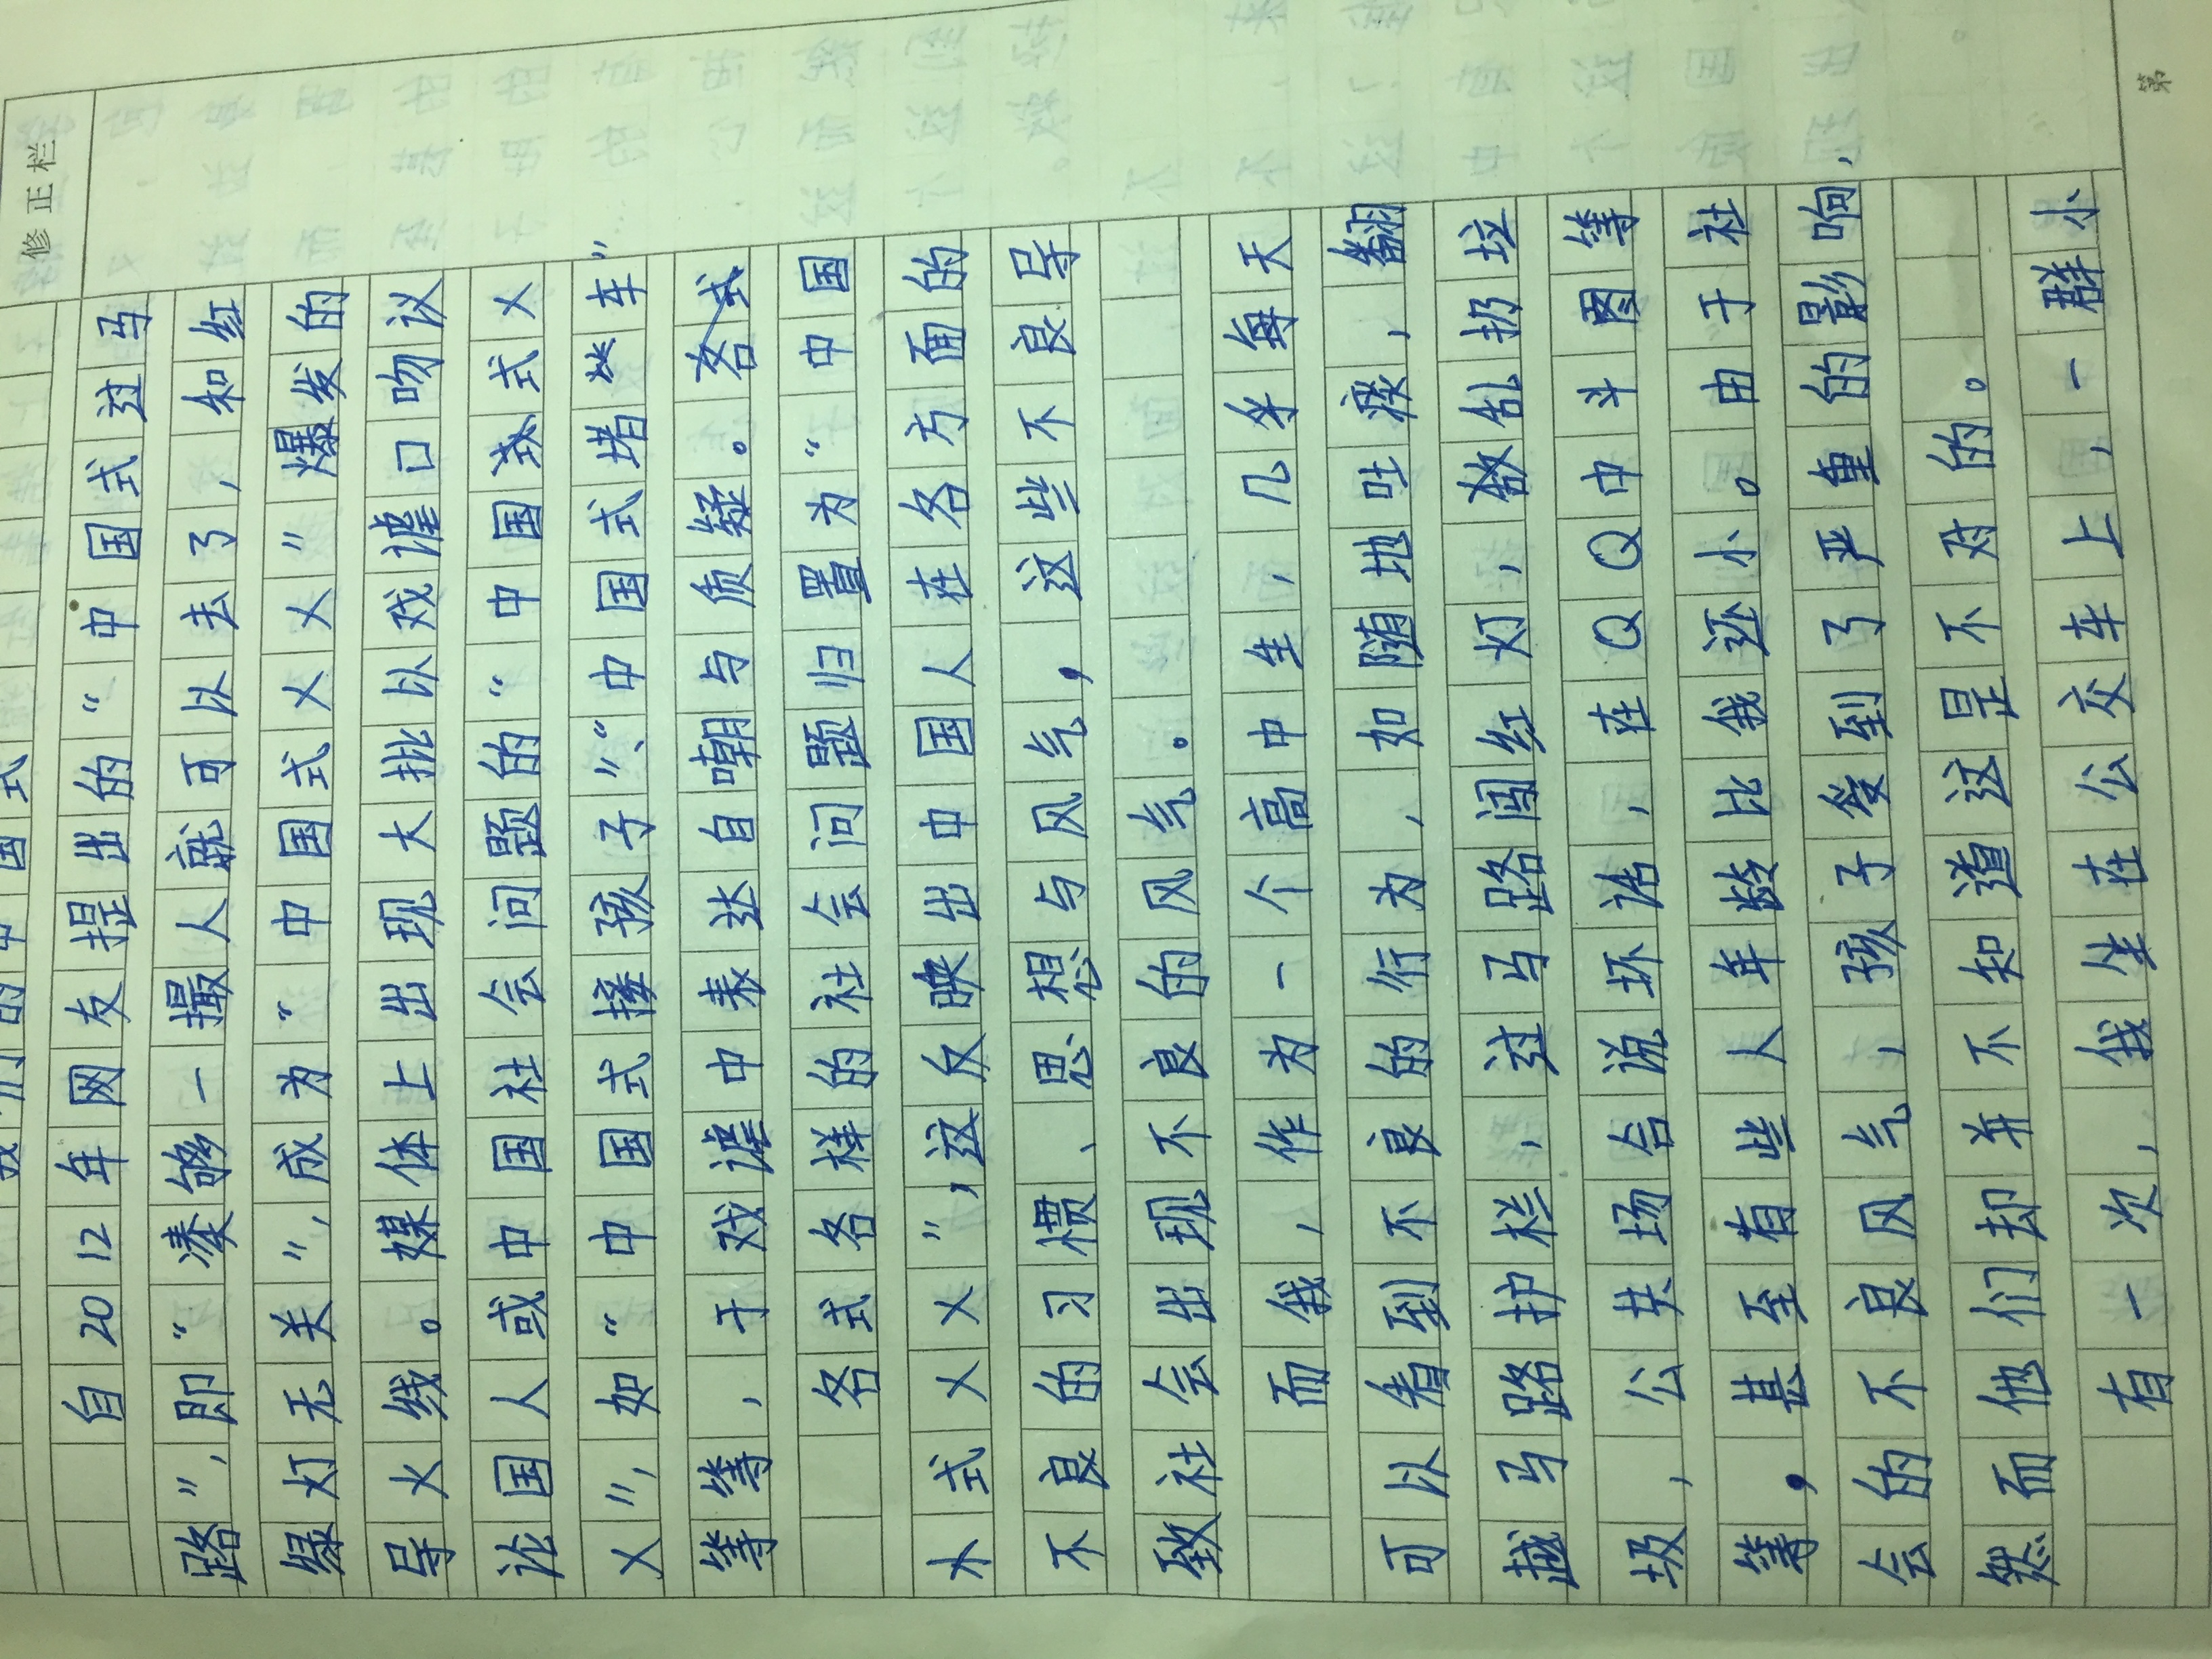 修正栏
我们的中国式
自2012年网友提出的“中国式过马
路”,即“凑够一撮人就可以去了,和红
绿灯无关”,成为“中国式乂乂”爆发的
导火线。媒体上出现大批以戏谑口吻议
论国人或中国社会问题的“中国式乂
乂”,如“中国式接孩子”、“中国式堵车”
等等,于戏谑中表达自嘲与质疑。
各式各样的社会问题归置为“中国
式乂乂”,这反映出中国人在各方面的
不良的习惯、思想与风气,这些不良导
致社会出现不良的风气。
而我,作为一个高中生,几乎每天
可以看到不良的行为,如随地吐痰,翻
越马路护栏,过马路闯红灯,乱扔垃
圾,公共场合说坏话,在QQ中斗图等
等,甚至有些人年龄比我还小。由于社
会的不良风气,孩子受到了严重的影响,
然而他们却并不知道这是不对的。
有一次,我坐在公交车上,一群小
第